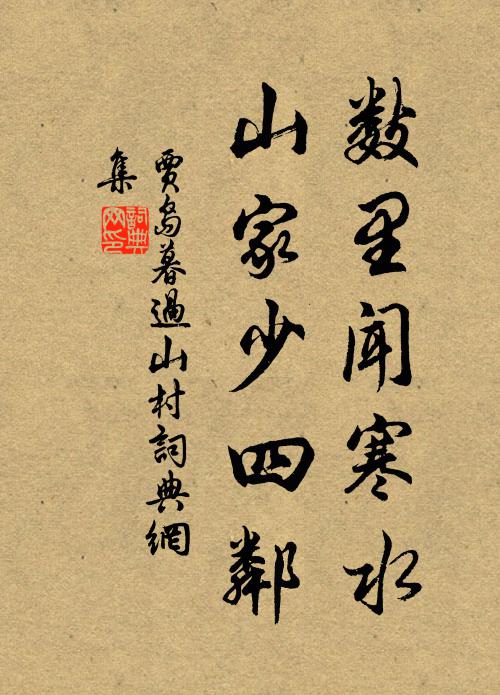 数里闻寒水
山家少四鄰
賈島暮過山村詞典網
集
詞典
网印